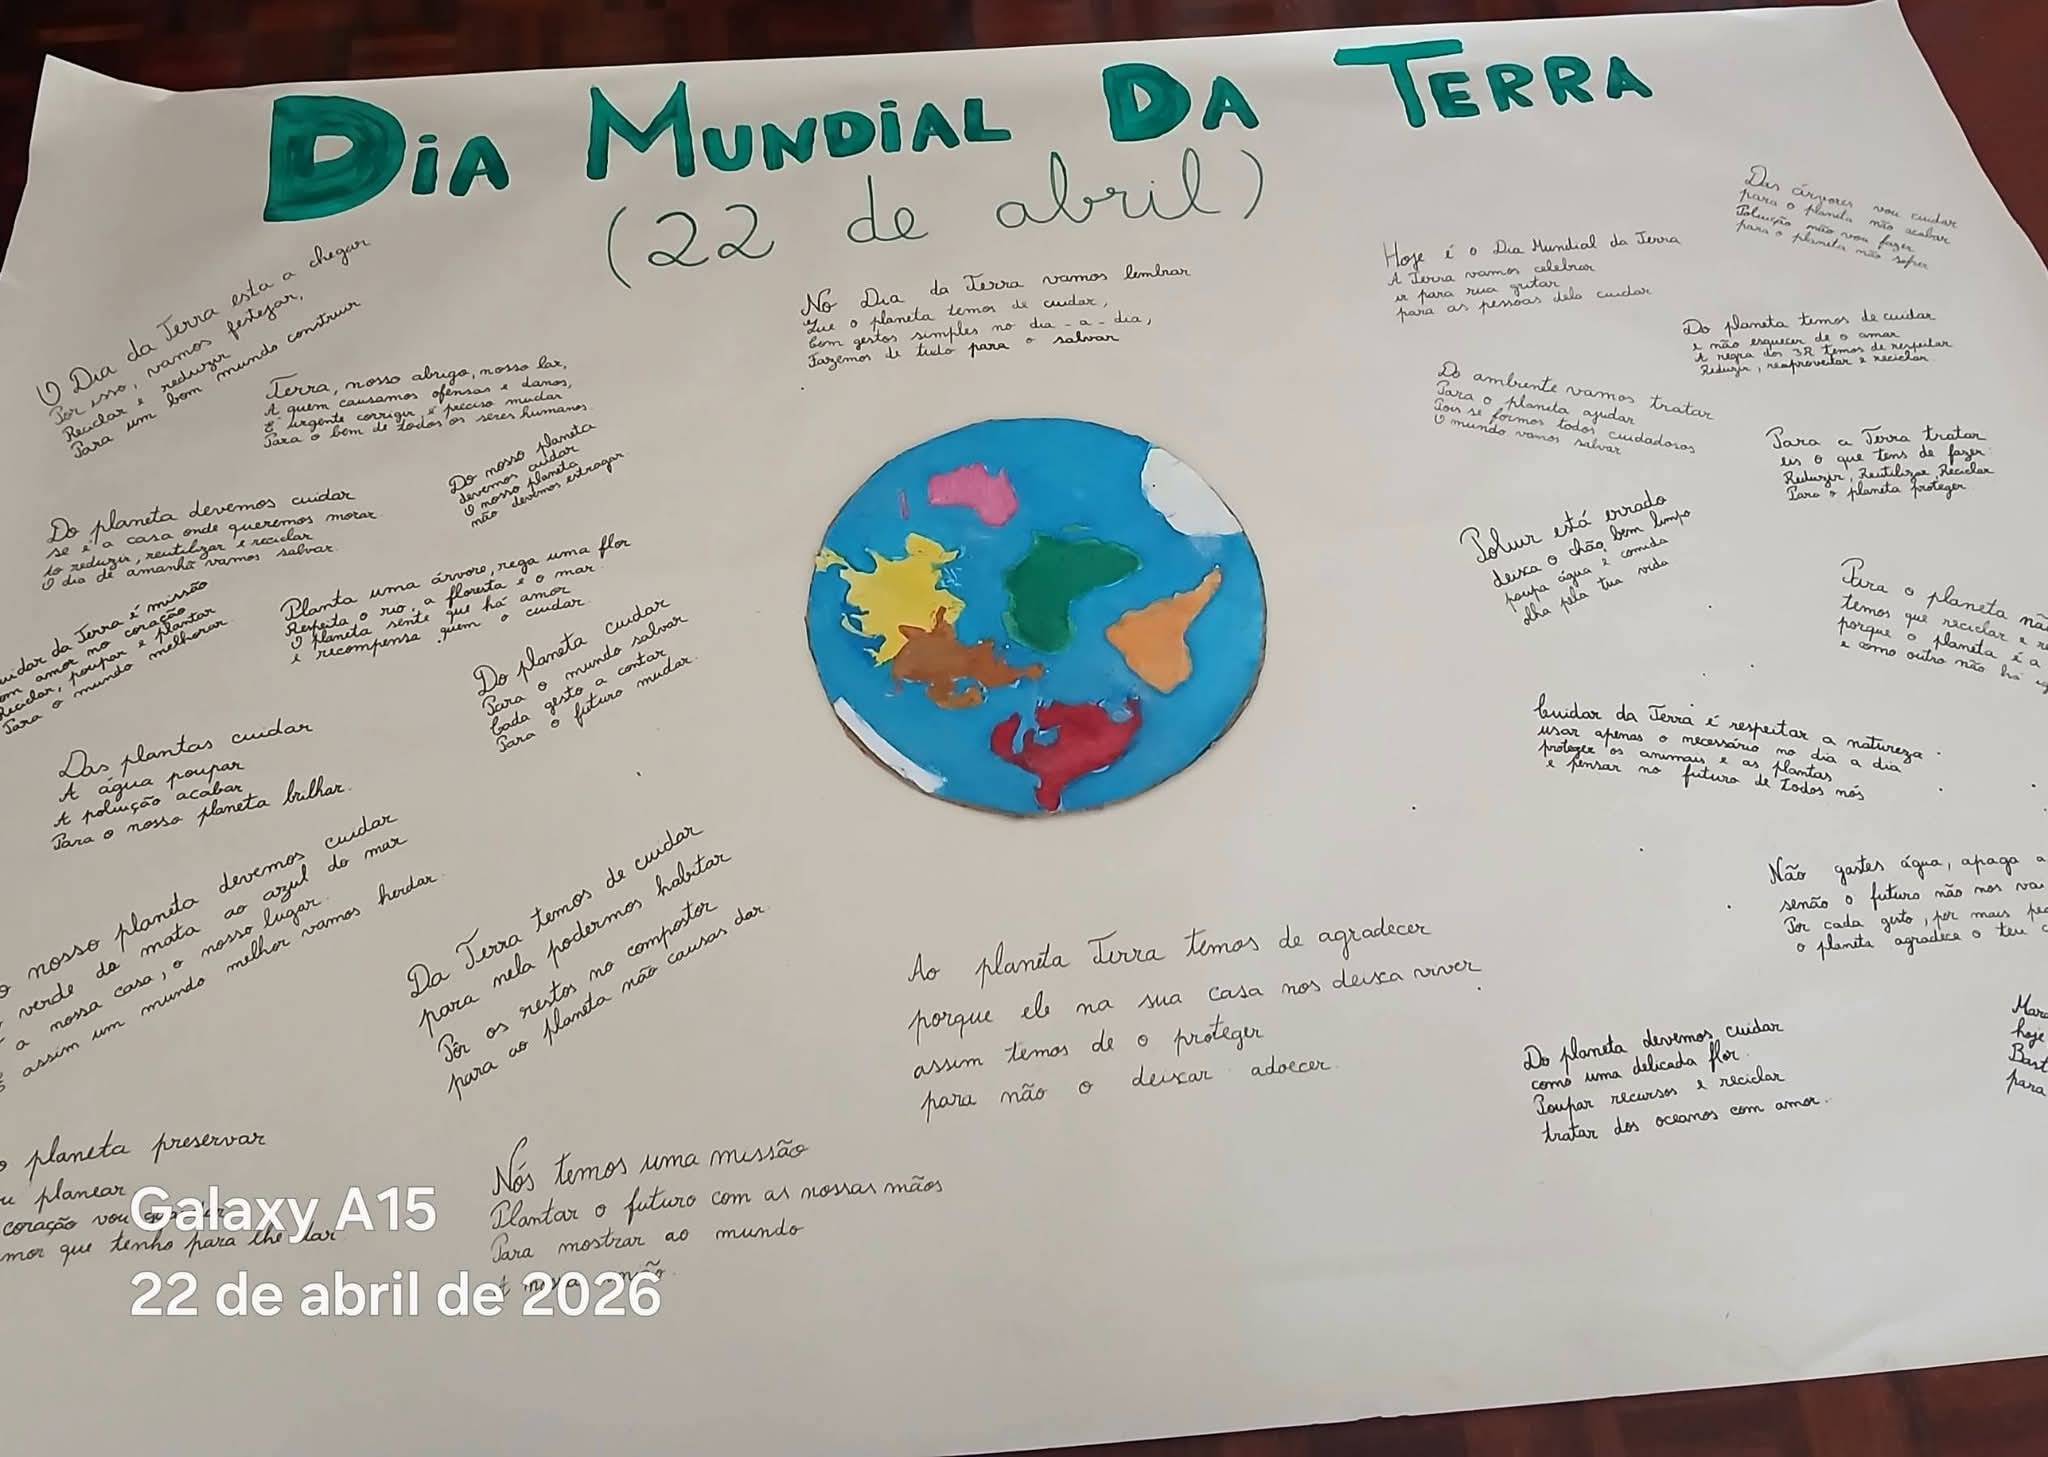 DiA MUNDiAL DA TERRA
(22 de abril)
O Dia da Terra esta a chegar
Por isso, vamos festejar,
Reciclar e reduzir
Para um bom mundo construir
Terra, nosso abrigo, nosso lar,
A quem causamos ofensas e danos,
É urgente corrigir, é preciso mudar
Para o bem de todos os seres humanos.
Do nosso planeta
devemos cuidar
O nosso planeta
não devemos estragar
Do planeta devemos cuidar
se é a casa onde queremos morar
to reduzir, reutilizar e reciclar
O dia de amanhã vamos salvar.
Planta uma árvore, rega uma flor
Respeita o rio, a floresta e o mar.
O planeta sente que há amor
e recompensa quem o cuidar.
uidar da Terra é missão
om amor no coração
Reciclar, poupar e plantar
Para o mundo melhorar.
Do planeta cuidar
Para o mundo salvar
Cada gesto a contar
Para o futuro mudar.
Das plantas cuidar
A água poupar
A poluição acabar
Para o nosso planeta brilhar.
o nosso planeta devemos cuidar
verde da mata ao azul do mar
a nossa casa, o nosso lugar.
É assim um mundo melhor vamos herdar.
Da Terra temos de cuidar
para nela podermos habitar
Pôr os restos no compostor
para ao planeta não causas dor.
o planeta preservar
u planear
coração vou
mor que tenho para lhe dar
Nós temos uma missão
Plantar o futuro com as nossas mãos
Para mostrar ao mundo
A nossa
No Dia da Terra vamos lembrar
Que o planeta temos de cuidar,
Com gestos simples no dia-a-dia,
Fazemos de tudo para o salvar
Ao planeta Terra temos de agradecer
porque ele na sua casa nos deixa viver
assim temos de o proteger
para não o deixar adoecer.
Das árvores vou cuidar
para o planeta não acabar
Poluição não vou fazer
para o planeta não sofrer
Hoje é o Dia Mundial da Terra
A Terra vamos celebrar
ir para rua gritar
para as pessoas dela cuidar
Do planeta temos de cuidar
e não esquecer de o amar
A regra dos 3R temos de respeitar
Reduzir, reaproveitar e reciclar.
Do ambiente vamos tratar
Para o planeta ajudar
Pois se formos todos cuidadosos
O mundo vamos salvar
Para a Terra tratar
eis o que tens de fazer:
Reduzir, Reutilizar, Reciclar
Para o planeta proteger
Poluir está errado
deixa o chão bem limpo
poupa água e comida
olha pela tua vida
Para o planeta nã
temos que reciclar e r
porque o planeta é a
e como outro não há ig
Cuidar da Terra é respeitar a natureza
usar apenas o necessário no dia a dia
proteger os animais e as plantas
e pensar no futuro de todos nós
Não gastes água, apaga a
senão o futuro não nos va
Por cada gesto, por mais pe
o planeta agradece o teu
Do planeta devemos cuidar
como uma delicada flor.
Poupar recursos e reciclar
tratar dos oceanos com amor.
Mar
hoje
Bast
para
Galaxy A15
22 de abril de 2026